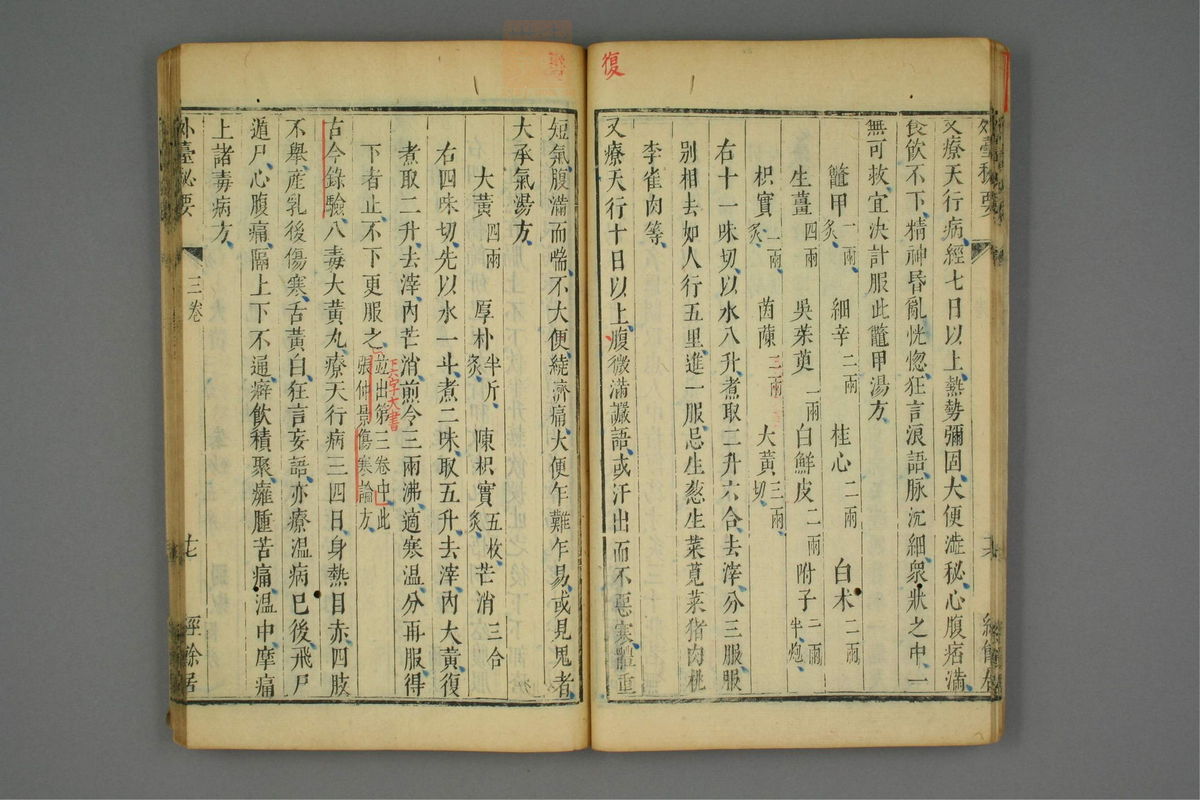 復
外臺秘要
又療天行病經七日以上熱勢彌固大便澁秘心腹痞滿
食飲不下精神昏亂恍惚狂言浪語脉沉細衆狀之中一
無可救宜決計服此鼈甲湯方
鼈甲二兩炙 細辛二兩 桂心二兩 白术二兩
生薑四兩 吳茱萸一兩 白鮮皮二兩 附子二兩半炮
枳實二兩炙 茵蔯三兩 大黃三兩切
右十一味切以水八升煮取二升六合去滓分三服服
別相去如人行五里進一服忌生葱生菜莧菜猪肉桃
李雀肉等
又療天行十日以上腹微滿讝語或汗出而不惡寒體重
短氣腹滿而喘不大便繞濟痛大便乍難乍易或見鬼者
大承氣湯方
大黃四兩 厚朴半斤炙 陳枳實五枚炙 芒消三合
右四味切先以水一斗煮二味取五升去滓內大黃復
煮取二升去滓內芒消煎令三兩沸適寒溫分再服得
下者止不下更服之並出第三卷中此
張仲景傷寒論方
正六字大書
古今錄驗八毒大黃丸療天行病三四日身熱目赤四肢
不舉產乳後傷寒舌黃白狂言妄語亦療溫病巳後飛尸
遁尸心腹痛隔上下不通癖飲積聚癰腫苦痛溫中摩痛
上諸毒病方
外臺秘要
三卷
十七
經餘居